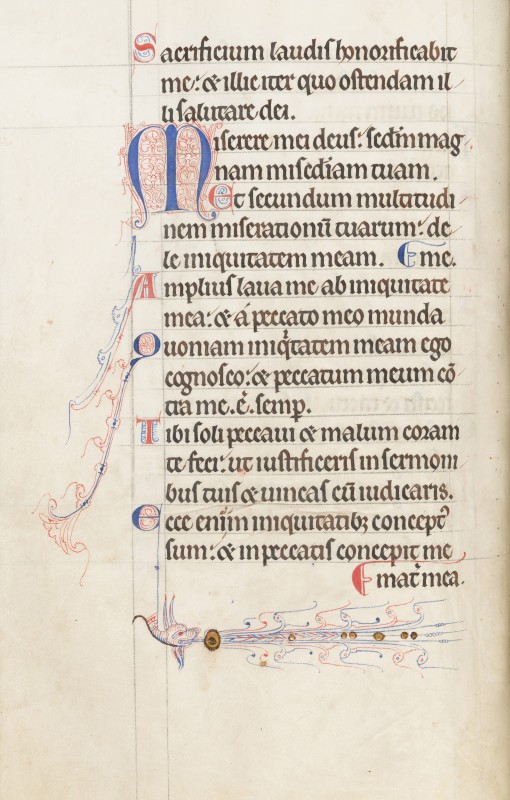 Sacrificium laudis honorificabit
me: & illic iter quo ostendam il
li salutare dei.
Miserere mei deus: scdm̄ mag
nam mis̄cdiam tuam.
Et secundum multitudi
nem miserationū tuarum: de
le iniquitatem meam. me.
Amplius laua me ab iniquitate
mea: & á peccato meo munda
Quoniam iniqͥtatem meam ego
cognosco: & peccatum meum cō
tra me. ē. semp̄.
Tibi soli peccaui & malum coram
te feci: ut iustificeris in sermoni
bus tuis & uincas cū iudicaris.
Ecce enim iniquitatibꝫ concept᾽
sum: & in peccatis concepit me
mat̄ mea.